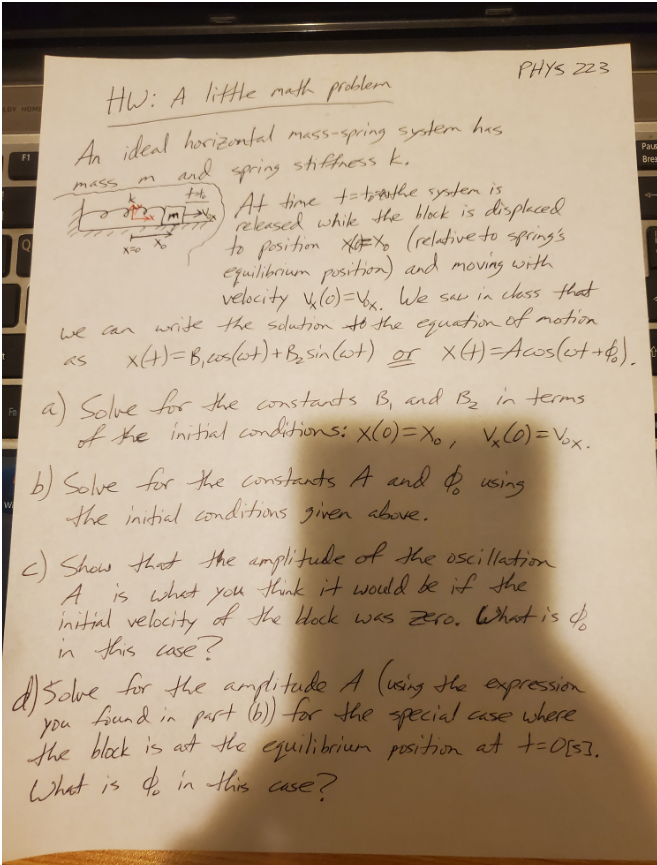 PHYS 223
HW: A little math problem
An ideal horizontal mass-spring system has
mass m and spring stiffness k.
k t=t₀
m
x
V₀x
x=0 x₀
At time t=t₀ the system is
released while the block is displaced
to position x₀ (relative to spring's
equilibrium position) and moving with
velocity Vx(0)=V₀x. We saw in class that
we can write the solution to the equation of motion
as x(t)=B₁cos(ωt)+B₂sin(ωt) or x(t)=Acos(ωt+ϕ₀).
a) Solve for the constants B₁ and B₂ in terms
of the initial conditions: x(0)=x₀, Vx(0)=V₀x.
b) Solve for the constants A and ϕ₀ using
the initial conditions given above.
c) Show that the amplitude of the oscillation
A is what you think it would be if the
initial velocity of the block was zero. What is ϕ₀
in this case?
d) Solve for the amplitude A (using the expression
you found in part (b)) for the special case where
the block is at the equilibrium position at t=0[s].
What is ϕ₀ in this case?
F1
Q
Fn
Paus
Brea